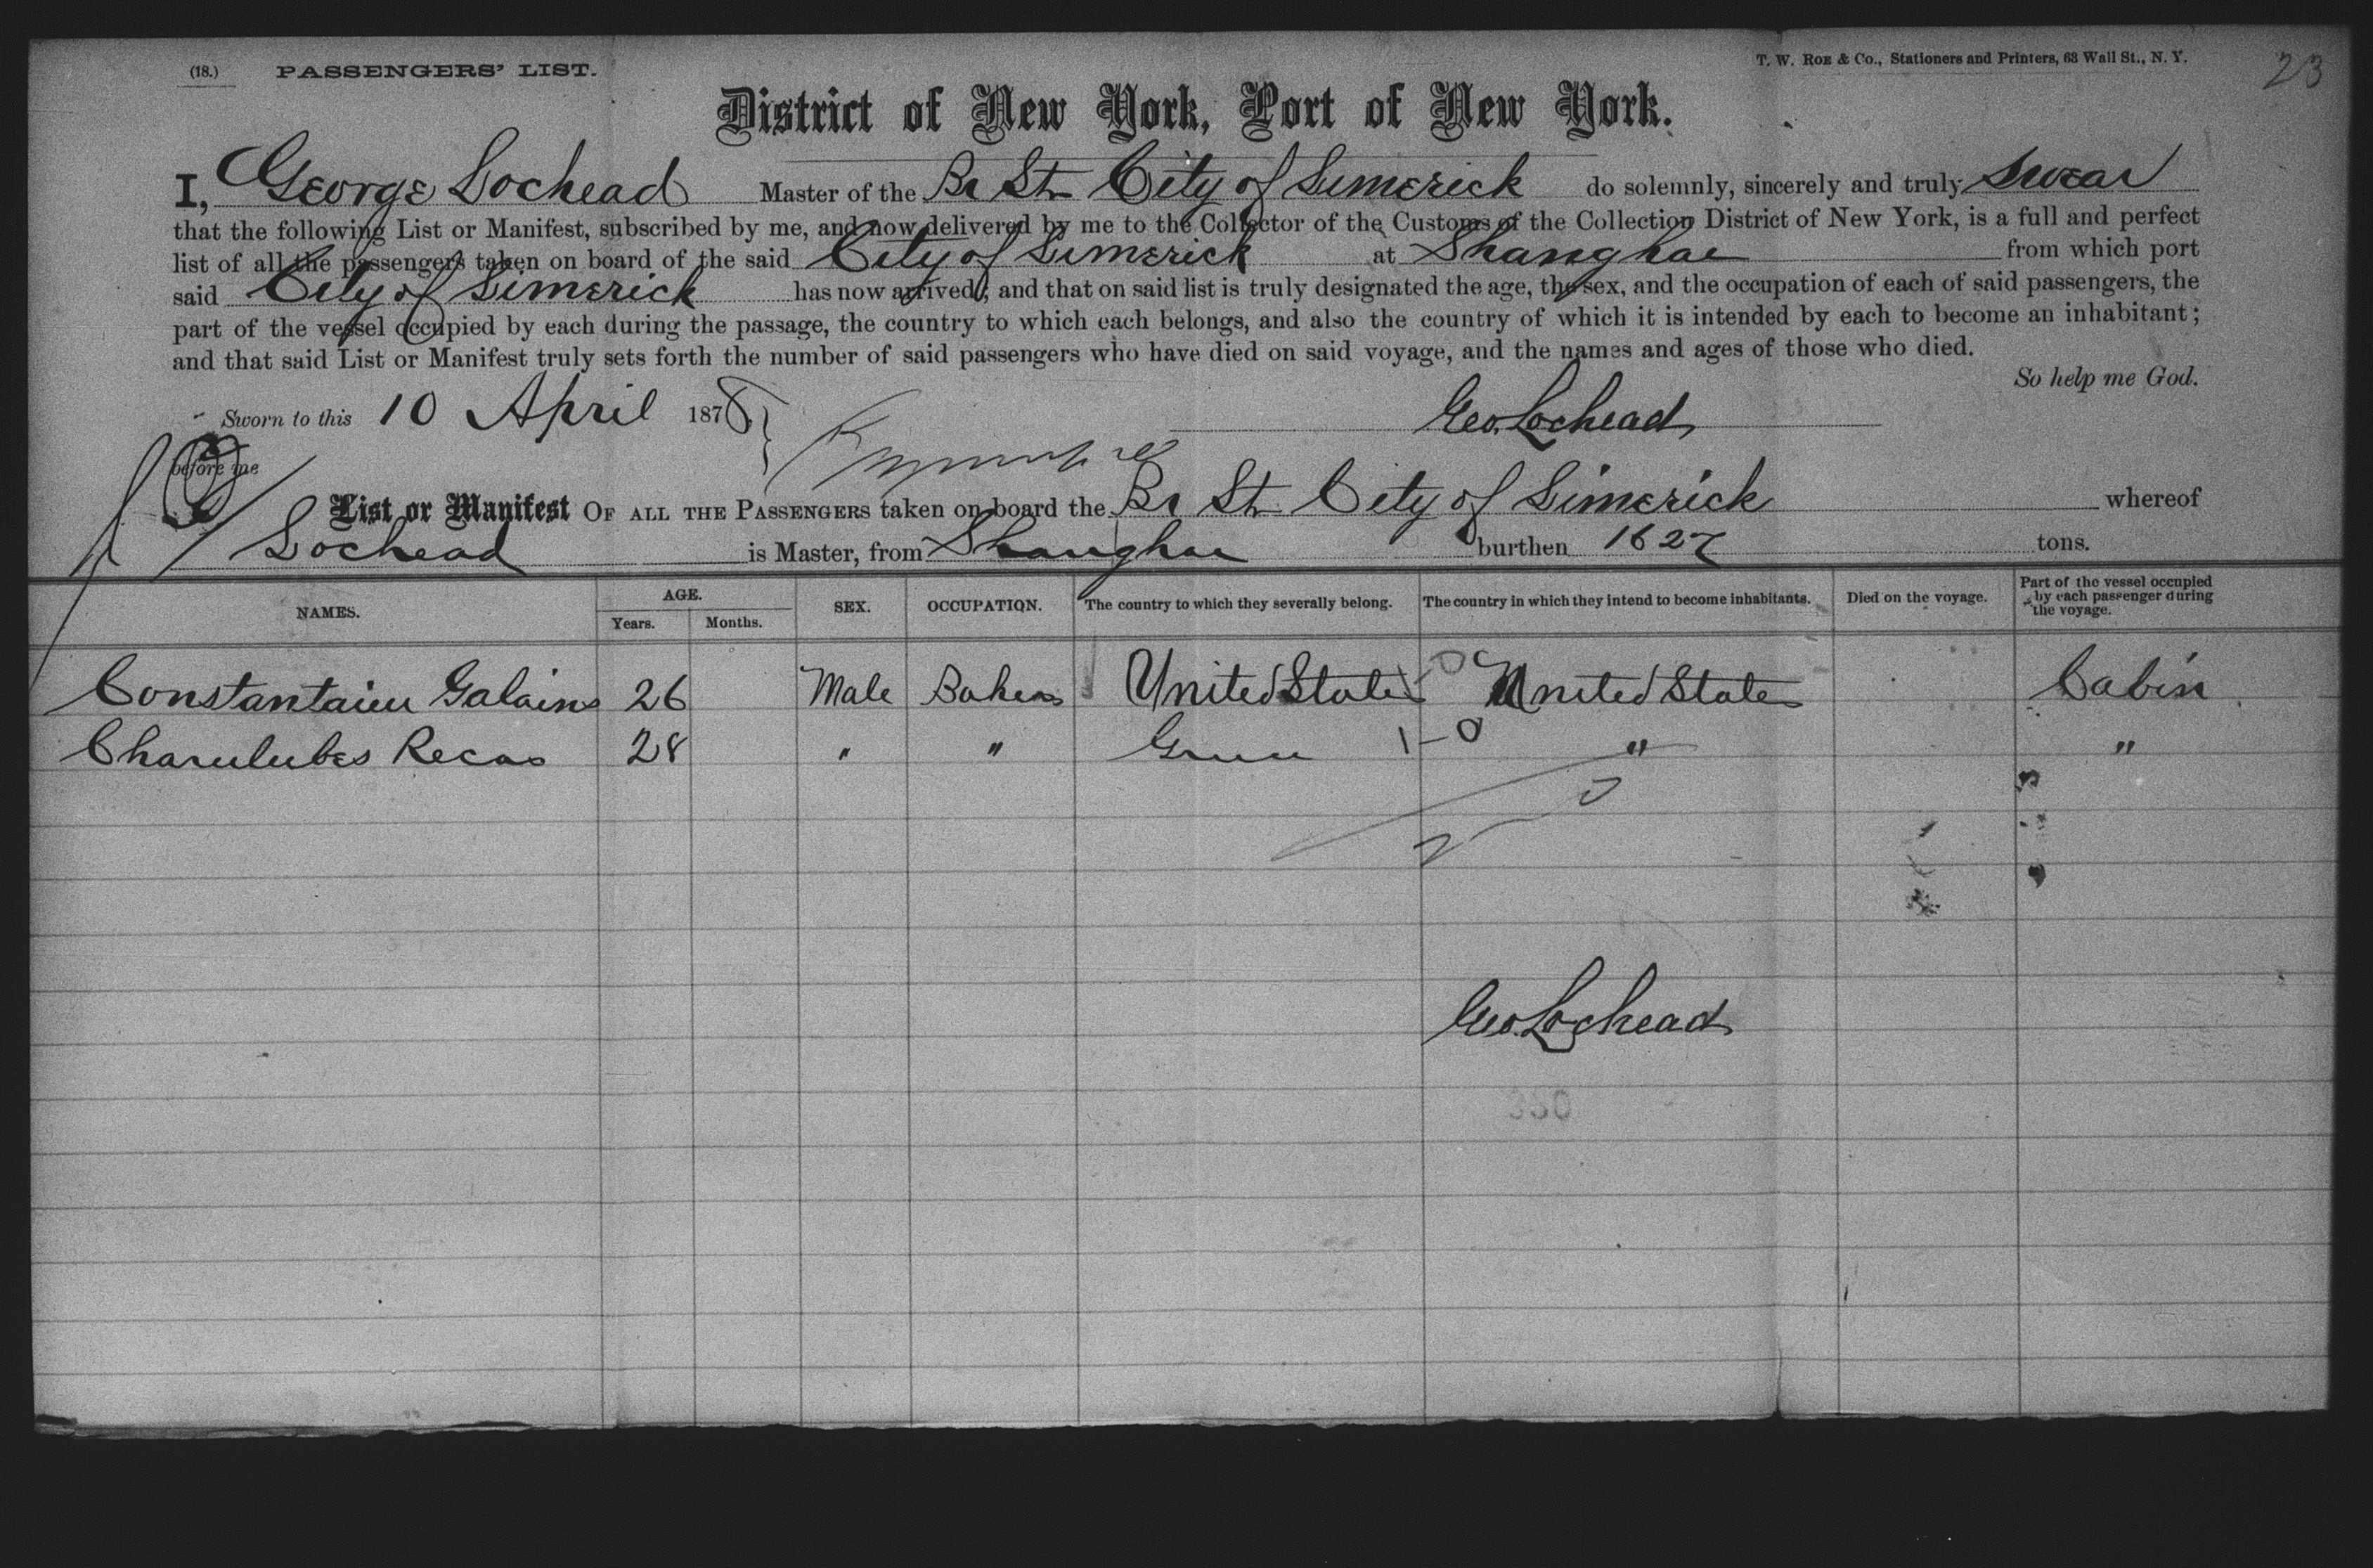 (18.) PASSENGERS' LIST.
T. W. Roe & Co., Stationers and Printers, 63 Wall St., N. Y.
23
District of New York, Port of New York.
I, George Lochead Master of the Br St City of Limerick do solemnly, sincerely and truly Swear
that the following List or Manifest, subscribed by me, and now delivered by me to the Collector of the Customs of the Collection District of New York, is a full and perfect
list of all the passengers taken on board of the said City of Limerick at Shanghae from which port
said City of Limerick has now arrived; and that on said list is truly designated the age, the sex, and the occupation of each of said passengers, the
part of the vessel occupied by each during the passage, the country to which each belongs, and also the country of which it is intended by each to become an inhabitant;
and that said List or Manifest truly sets forth the number of said passengers who have died on said voyage, and the names and ages of those who died.
So help me God.
Sworn to this 10 April 1878. Geo. Lochead
before me
List or Manifest OF ALL THE PASSENGERS taken on board the Br St City of Limerick whereof
Lochead is Master, from Shanghae burthen 1627 tons.
NAMES. AGE. Years. Months. SEX. OCCUPATION. The country to which they severally belong. The country in which they intend to become inhabitants. Died on the voyage. Part of the vessel occupied by each passenger during the voyage.
Galains 26 Male United States United States Cabin
Recas 28 " " 1-0 " "
Geo. Lochead